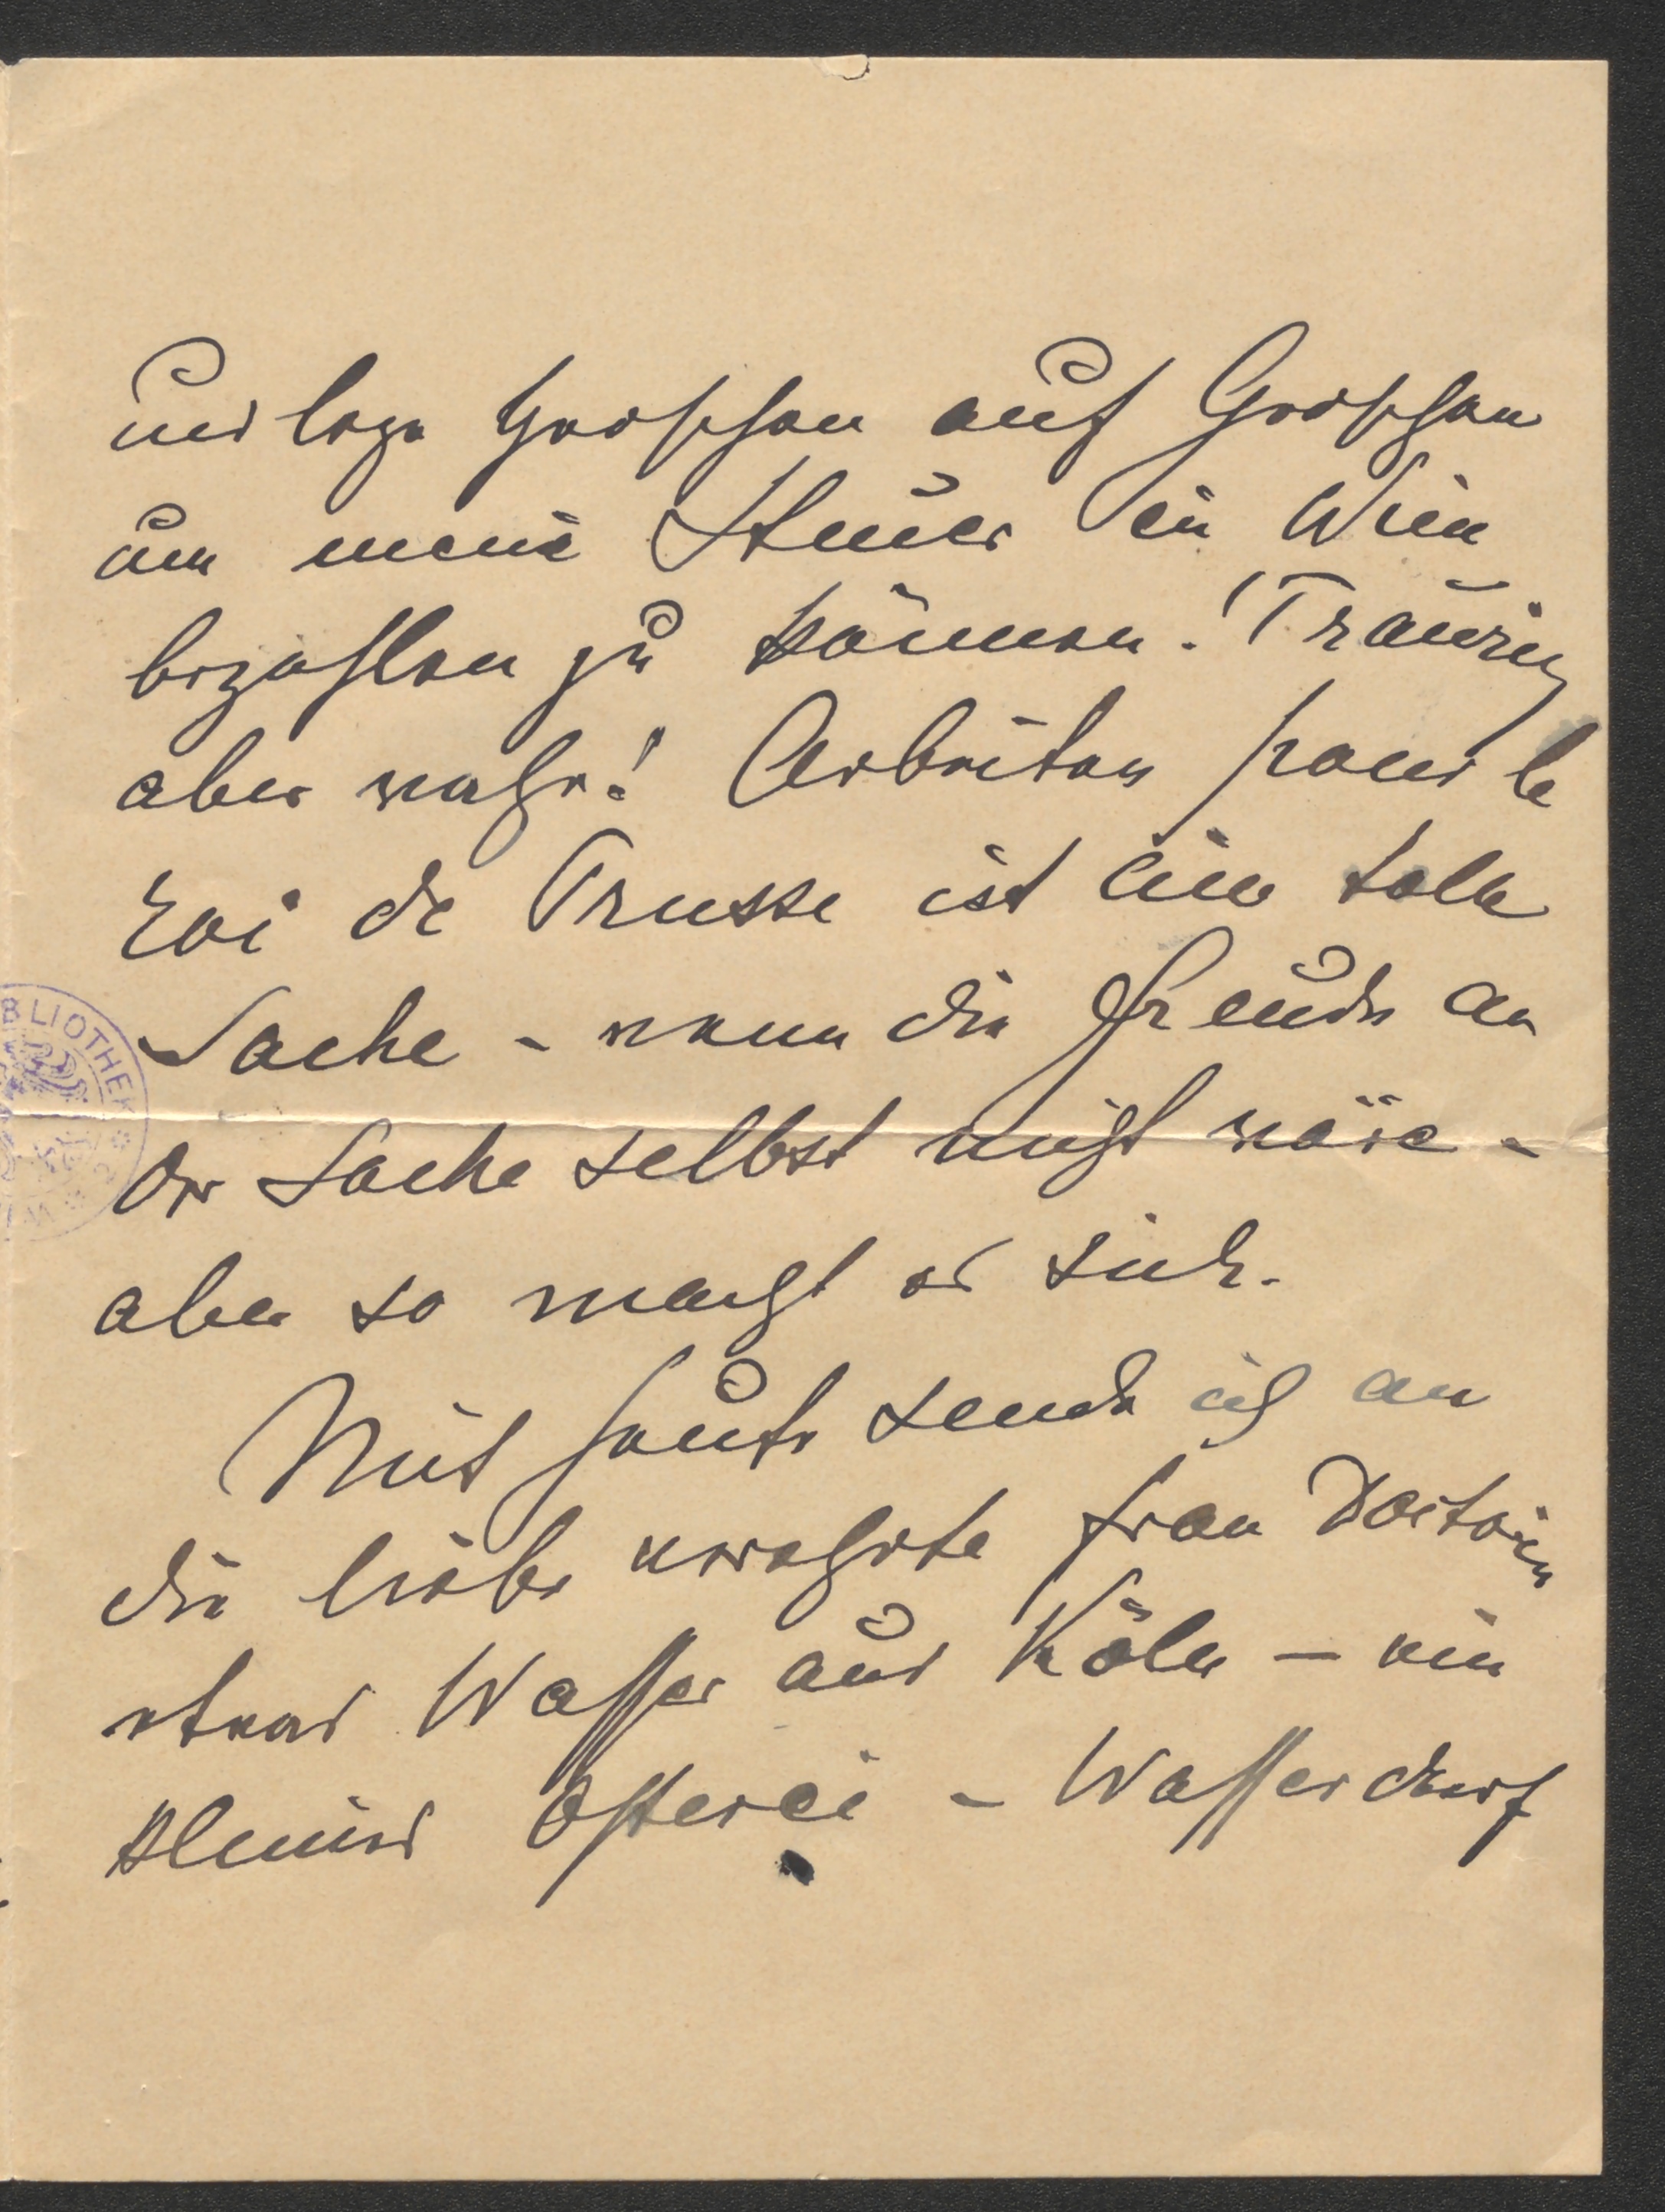 und lege Groschen auf Groschen
um meine Steuer in Wien
bezahlen zu können! Traurig
aber wahr! Arbeiten pour le
roi de Prusse ist eine tolle
Sache - wenn die Freude an
der Sache selbst nicht wäre -
aber so macht es sich.
Mit heute sende ich an
die liebe verehrte Frau Doctorin
etwas Wasser aus Köln — ein
kleines Osterei - Wasser darf
BLIOTHEK